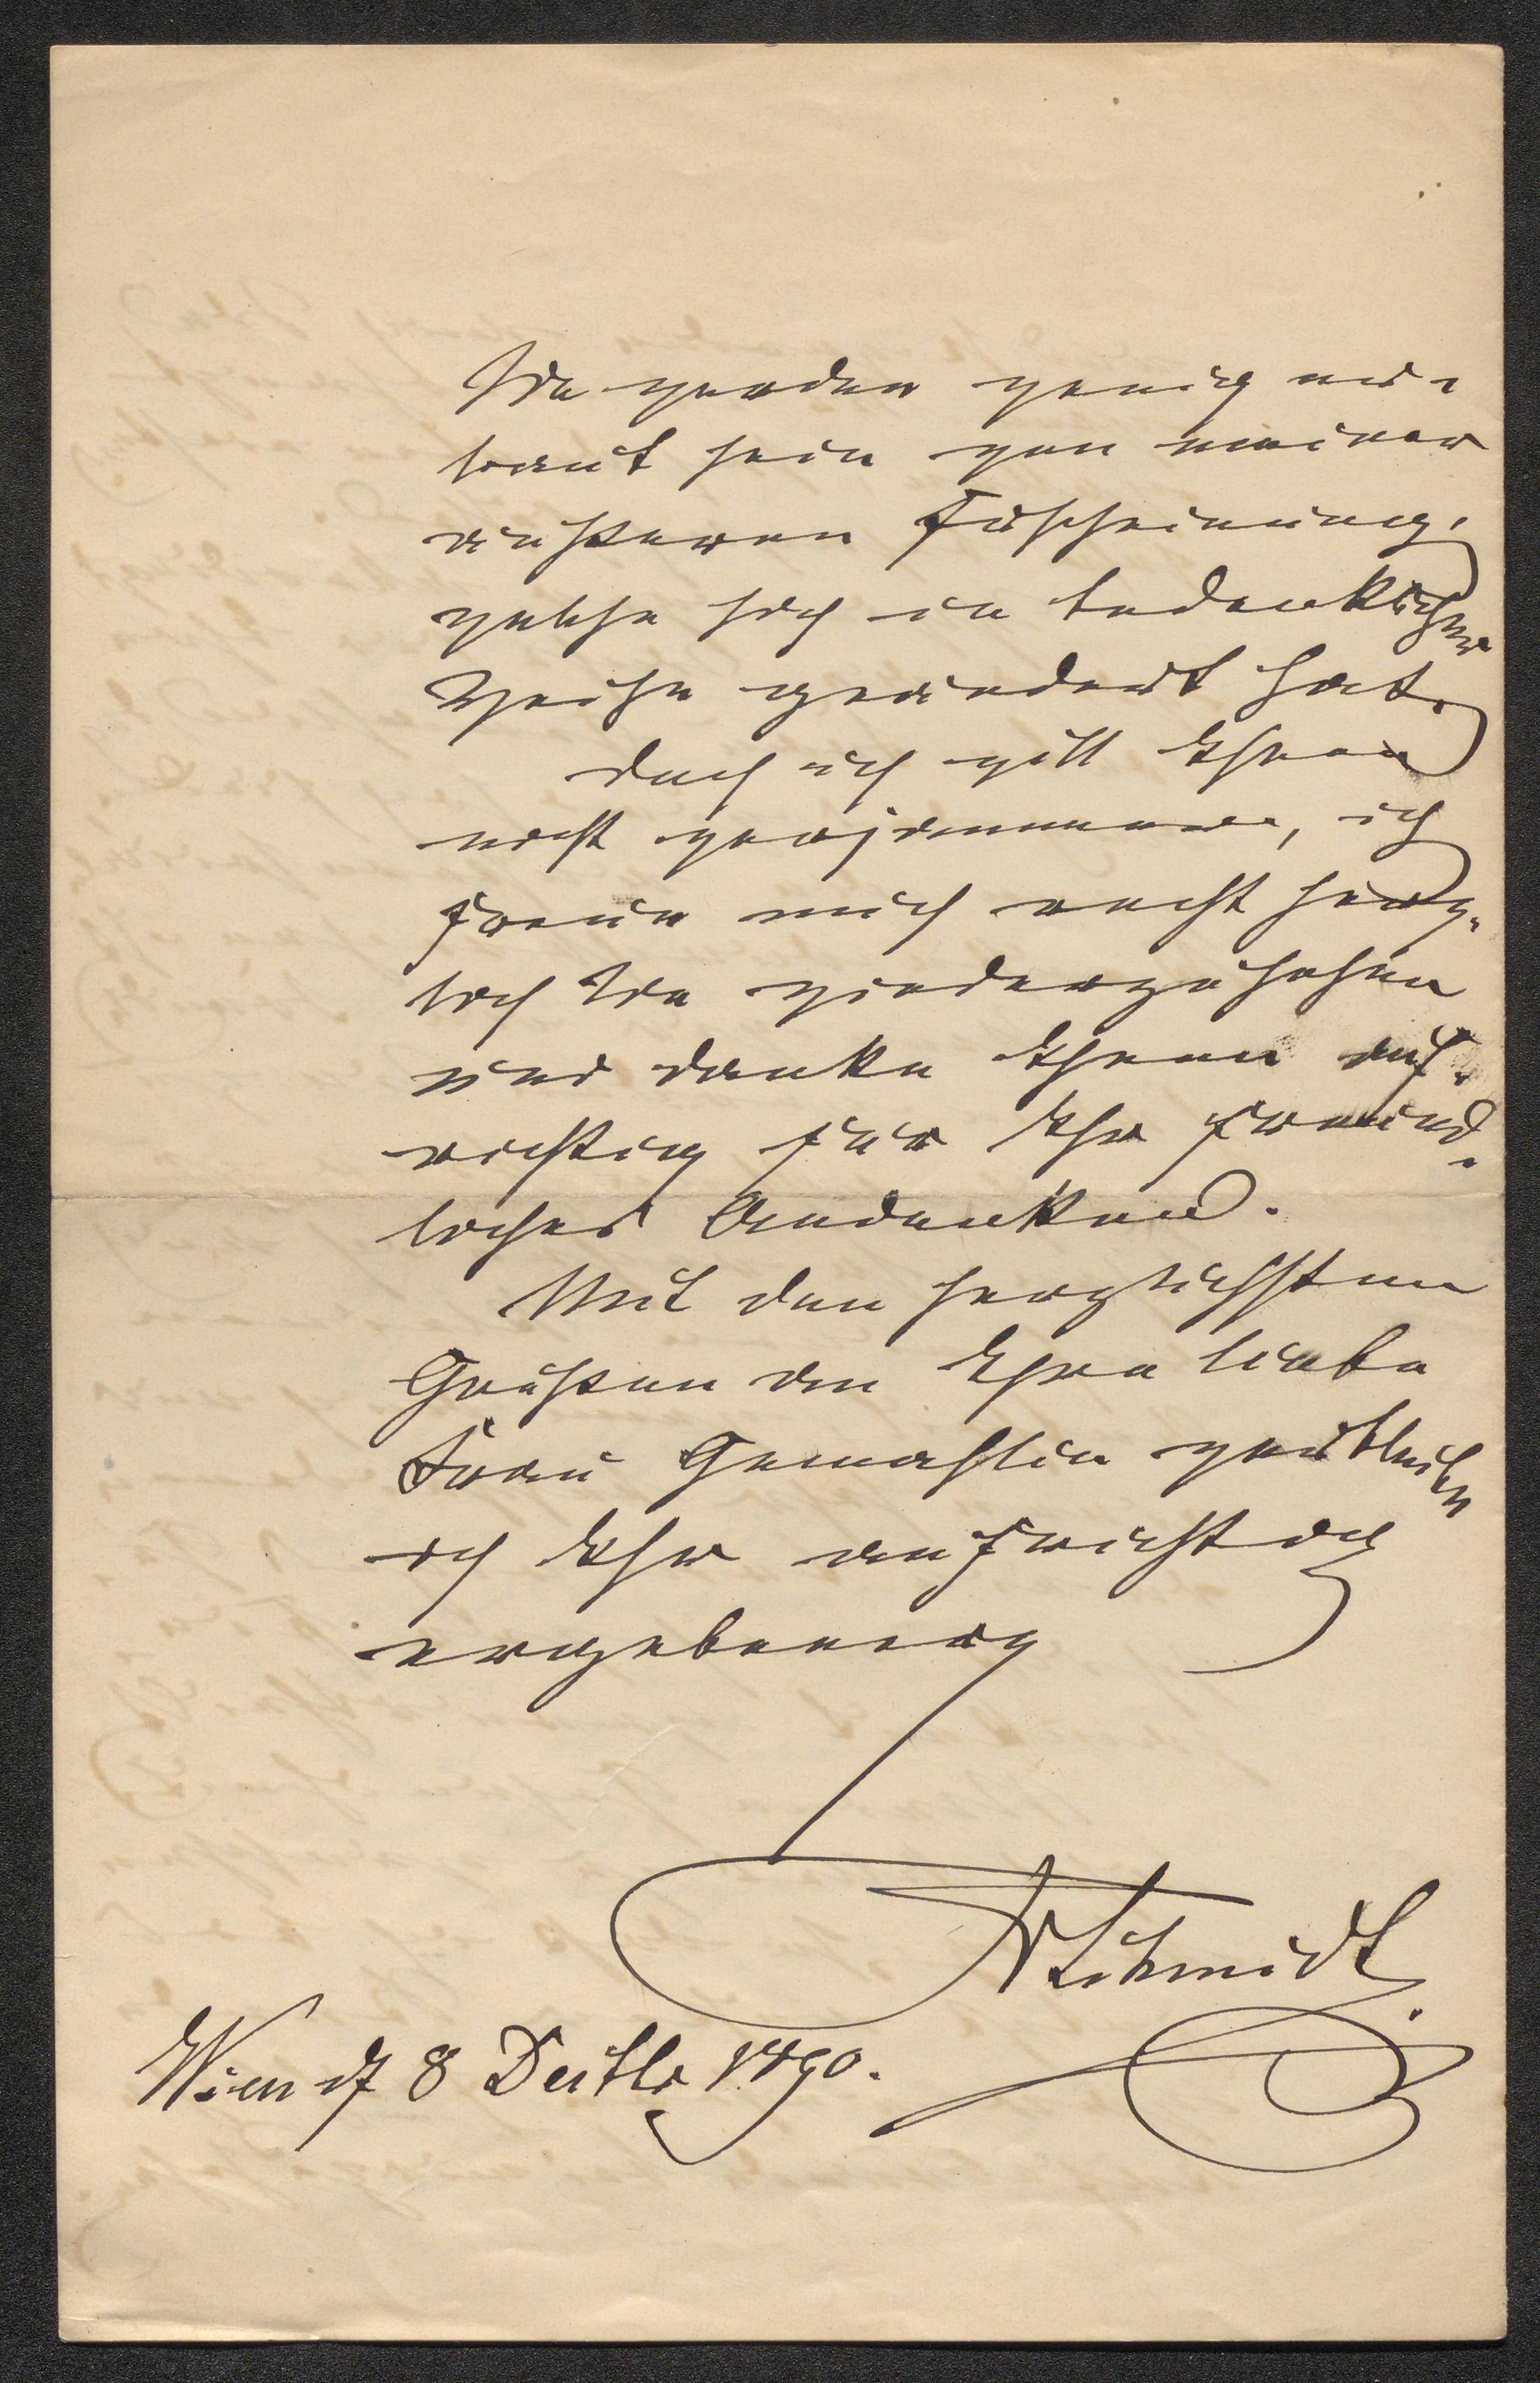 Sie werden wenig er-
baut sein von meiner
äußeren Erscheinung,
welche sich in bedenklicher
Weise geändert hat.
Doch ich will Ihnen
nicht vorjammern, ich
freue mich recht herz-
lich Sie wiederzusehen
und danke Ihnen auf-
richtig für Ihr freund-
liches Andenken.
Mit den herzlichsten
Grüßen an Ihre liebe
Frau Gemahlin verbleibe
ich Ihr aufrichtig
ergebener
Schmidt
Wien 8 1890.